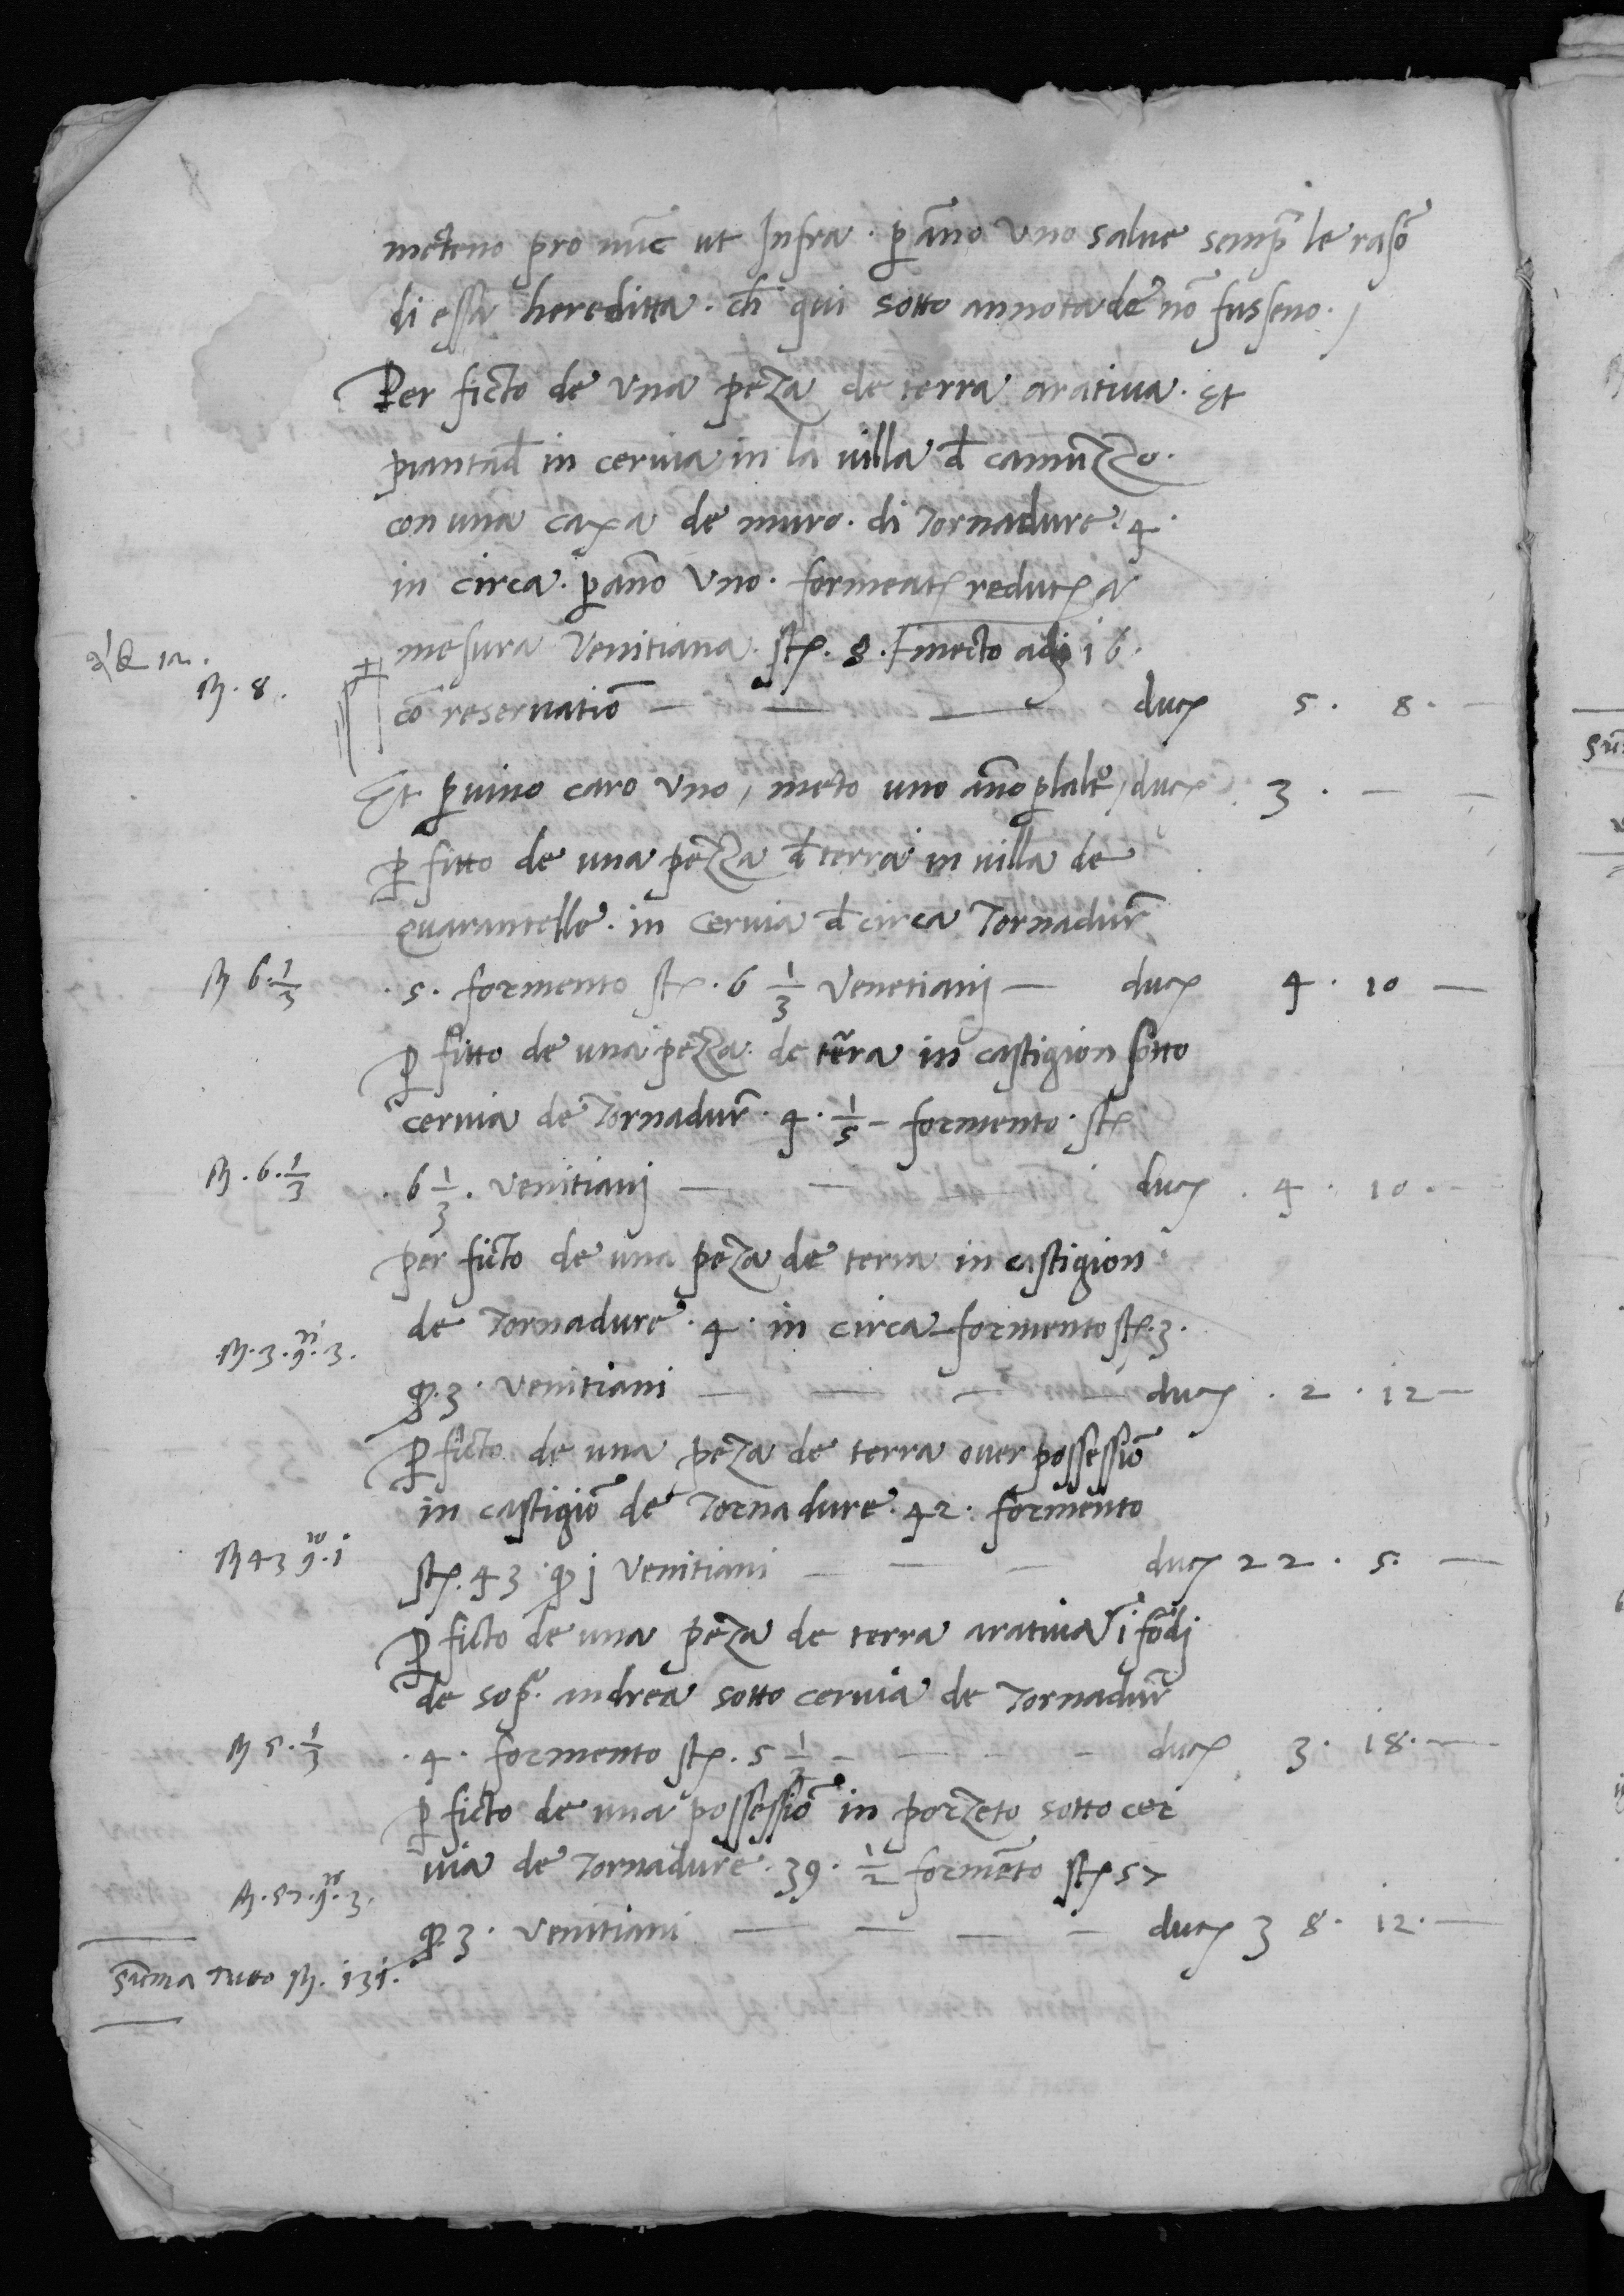 metteno pro nũc ut Infra · p año Uno salue semp le rasõ
di essa hereditta · ch qui sotto annotade nõ fusseno ·
Per ficto de Una peza de terra aratiua · Et
piantad in ceruia in la uilla d camuzzo ·
con una caxa de muro · di Tornadure · 4 ·
in circa · p año Uno · formento reduto a
mesura Venitiana · st · 8 · + metto adi 16 ·
st · 8 ·
cõ reseruatiõ — — — duc 5 · 8 · —
Et p uino caro Uno / meto uno año p laltro / duc 3 · — —
p fitto de una pezza d terra in uilla de
quarantelle · in Ceruia d circa Tornadur
st 6 · 1/3 · 5 · formento st · 6 1/3 Venetianj — duc 4 · 10 —
p fitto de una pezza de tẽra in castigion sotto
ceruia de Tornadur · 4 · 1/5 - formento · st
st · 6 · 1/3 · 6 1/3 · Venitianj — — — duc · 4 · 10 · —
per ficto de una peza de terra in castigion
de Tornadure · 4 · in circa formento st · 3 ·
st · 3 · q · 3 ·
q · 3 · Venitiani — — — duc · 2 · 12 —
p ficto de una peza de terra ouer possessiõ
in castigiõ de Tornadure · 42 · formento
st 43 q · i st · 43 · q j Venitiani — — duc 22 · 5 · —
p ficto de una peza de terra aratiua ĩ fõdj
de sop · andrea sotto ceruia de Tornadur
st 5 · 1/3 · 4 · formento st · 5 1/3 — — — duc 3 · 18 · —
p ficto de una possessiõ in porzeto sotto cer
uia de Tornadure · 39 · 1/2 formẽto st 57
st · 57 · q · 3 ·
q · 3 · Venitiani — — — — duc 38 · 12 · —
Sũma tuto st · 131 ·